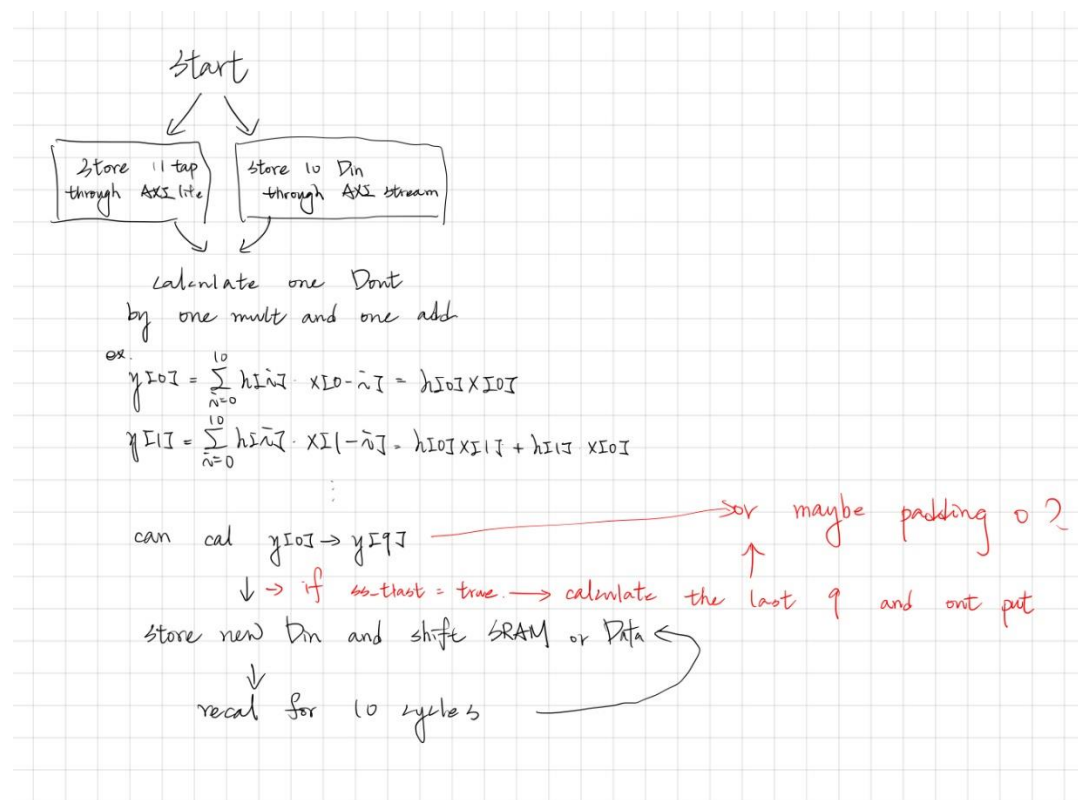 start
store 11 tap
through AXI lite
store 10 Din
through AXI stream
calculate one Dout
by one mult and one add
ex.
y[0] = Σ_{i=0}^{10} h[i] · x[0-i] = h[0]x[0]
y[1] = Σ_{i=0}^{10} h[i] · x[1-i] = h[0]x[1] + h[1] · x[0]
⋮
can cal y[0] → y[9] → or maybe padding 0 ?
↓ → if ss_tlast = true. → calculate the last 9 and out put
store new Din and shift SRAM or Data
recal for 10 cycles